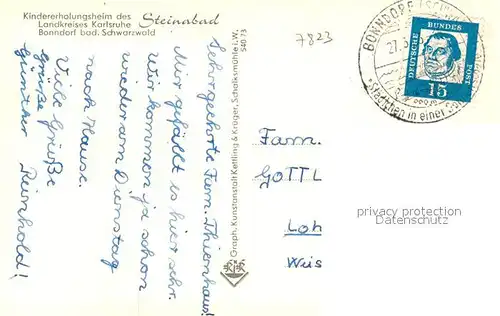 Kindererholungsheim des
Landkreises Karlsruhe Steinabad
Bonndorf bad. Schwarzwald
Sehrgeehrte Fam. Thienhaus!
Mir gefällt es hier sehr.
Wir kommen ja schon
wieder am Dienstag
nach Hause.
Viele Grüße
Günther Reinhold!
Graph. Kunstanstalt Kettling & Krüger, Schalksmühle i. W.
540 73
7823
BONNDORF (SCHW
27.3
Städtchen in einer
DEUTSCHE
BUNDES
POST
15
Fam.
GOTTL
Loh
Wüs
privacy protection
Datenschutz